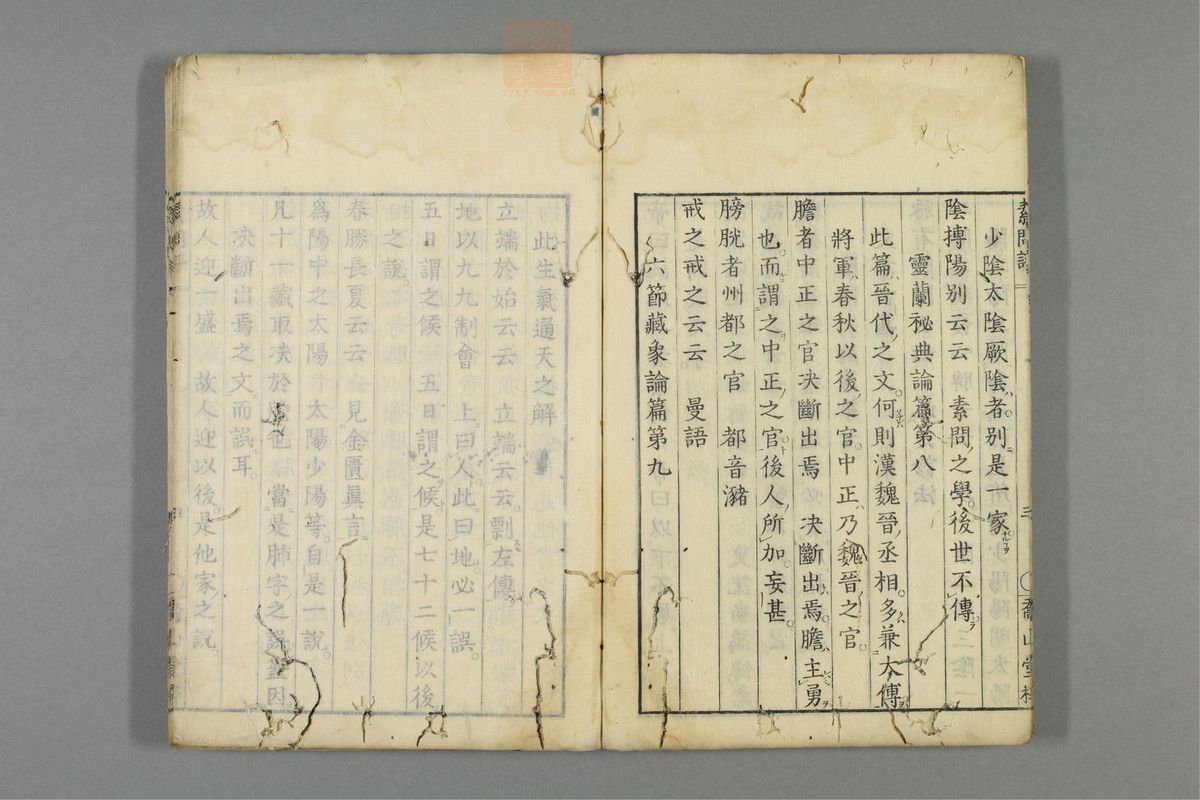 少陰太陰厥陰者別是一家
陰搏陽別云云 脾素問之學後世不傳
靈蘭祕典論篇第八
此篇晉代之文何則漢魏晉丞相多兼太傅
將軍春秋以後之官中正乃魏晉之官
膽者中正之官决斷出焉 决斷出焉膽主勇
也而謂之中正之官後人所加妄甚
膀胱者州都之官 都音瀦
戒之戒之云云 曼語
六節藏象論篇第九
此生氣通天之解
立端於始云云 立端云云剽左傳
地以九九制會 上曰人此曰地必一誤
五日謂之候 五日謂之候是七十二候以後
之說
春勝長夏云云 見金匱眞言
爲陽中之太陽 太陽少陽等自是一說
凡十一藏取决於膽也 當是肺字之誤蓋因
决斷出焉之文而誤耳
故人迎一盛 故人迎以後是他家之說